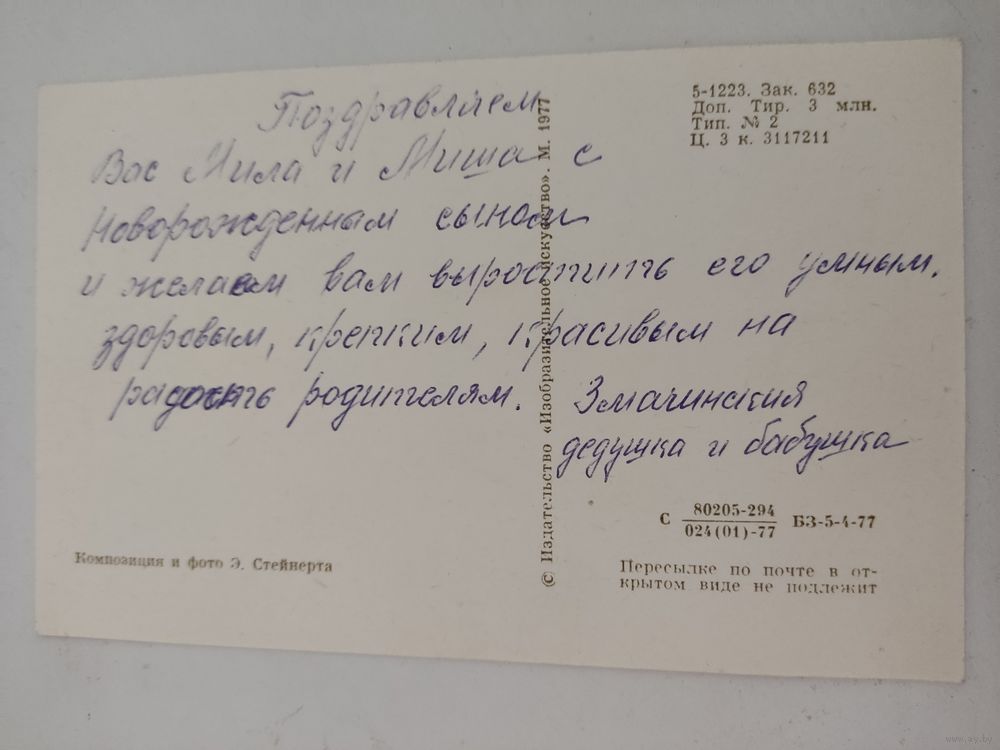 Поздравляем
Вас Мила и Миша с
Новорожденным сыном
и желаем вам выростить его умным,
здоровым, крепким, красивым на
радость родителям. Змачинския
дедушка и бабушка
5-1223. Зак. 632
Доп. Тир. 3 млн.
Тип. № 2
Ц. 3 к. 3117211
© Издательство «Изобразительное искусство». М. 1977
С 80205-294
024(01)-77 БЗ-5-4-77
Композиция и фото Э. Стейнерта
Пересылке по почте в от-
крытом виде не подлежит
www.ay.by